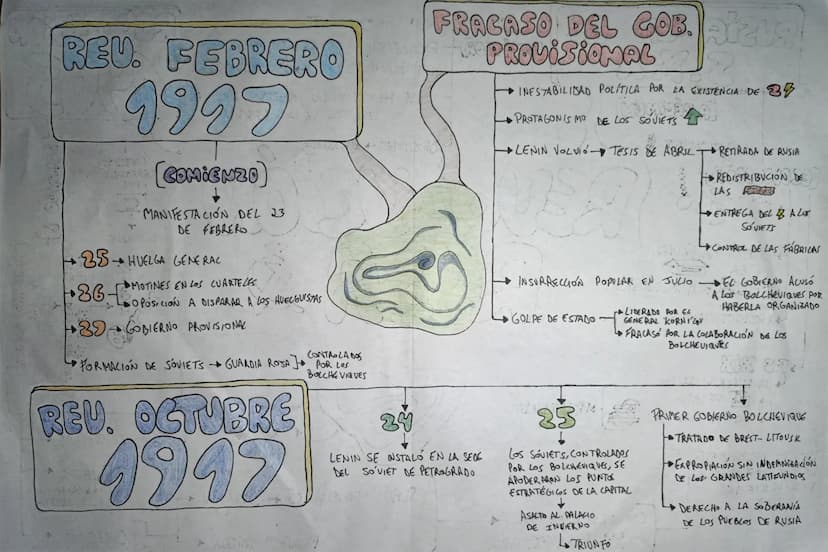 REV. FEBRERO
1917
[COMIENZO]
MANIFESTACIÓN DEL 23
DE FEBRERO
25 → HUELGA GENERAL
26 → MOTINES EN LOS CUARTELES
→ OPOSICIÓN A DISPARAR A LOS HUELGUISTAS
29 → GOBIERNO PROVISIONAL
FORMACIÓN DE SÓVIETS → GUARDIA ROJA ] → CONTROLADOS
POR LOS
BOLCHEVIQUES
FRACASO DEL GOB.
PROVISIONAL
INESTABILIDAD POLÍTICA POR LA EXISTENCIA DE 2
PROTAGONISMO DE LOS SÓVIETS
LENIN VOLVIÓ → TESIS DE ABRIL → RETIRADA DE RUSIA
REDISTRIBUCIÓN DE
LAS
ENTREGA DEL A LOS
SÓVIETS
CONTROL DE LAS FÁBRICAS
INSURRECCIÓN POPULAR EN JULIO → EL GOBIERNO ACUSÓ
A LOS BOLCHEVIQUES POR
HABERLA ORGANIZADO
GOLPE DE ESTADO → LIDERADO POR EL
GENERAL KORNÍLOV
→ FRACASÓ POR LA COLABORACIÓN DE LOS
BOLCHEVIQUES
REV. OCTUBRE
1917
24
LENIN SE INSTALÓ EN LA SEDE
DEL SÓVIET DE PETROGRADO
25
LOS SÓVIETS, CONTROLADOS
POR LOS BOLCHEVIQUES, SE
APODERARON LOS PUNTOS
ESTRATÉGICOS DE LA CAPITAL
ASALTO AL PALACIO
DE INVIERNO
→ TRIUNFÓ
PRIMER GOBIERNO BOLCHEVIQUE
→ TRATADO DE BREST-LITOVSK
→ EXPROPIACIÓN SIN INDEMNIZACIÓN
DE LOS GRANDES LATIFUNDIOS
→ DERECHO A LA SOBERANÍA
DE LOS PUEBLOS DE RUSIA